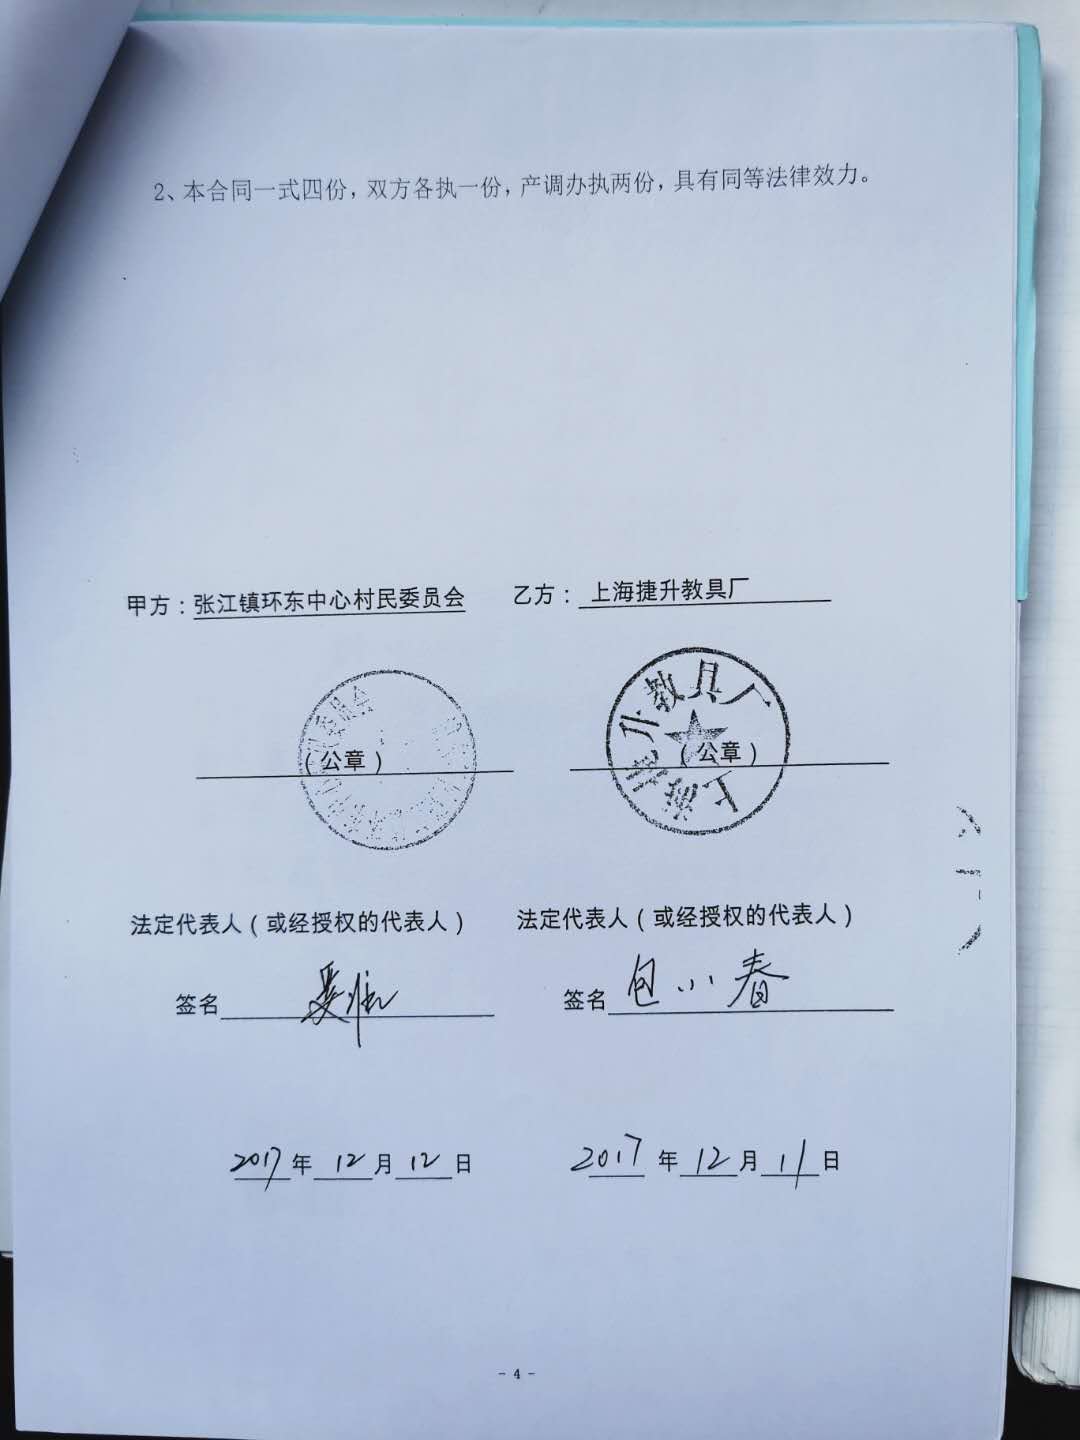 2、本合同一式四份，双方各执一份，产调办执两份，具有同等法律效力。
甲方：张江镇环东中心村民委员会 乙方：上海捷升教具厂
上海捷升教具厂
（公章） （公章）
法定代表人（或经授权的代表人） 法定代表人（或经授权的代表人）
签名 签名 包小春
2017年 12月 12日 2017年 12月 11日
- 4 -